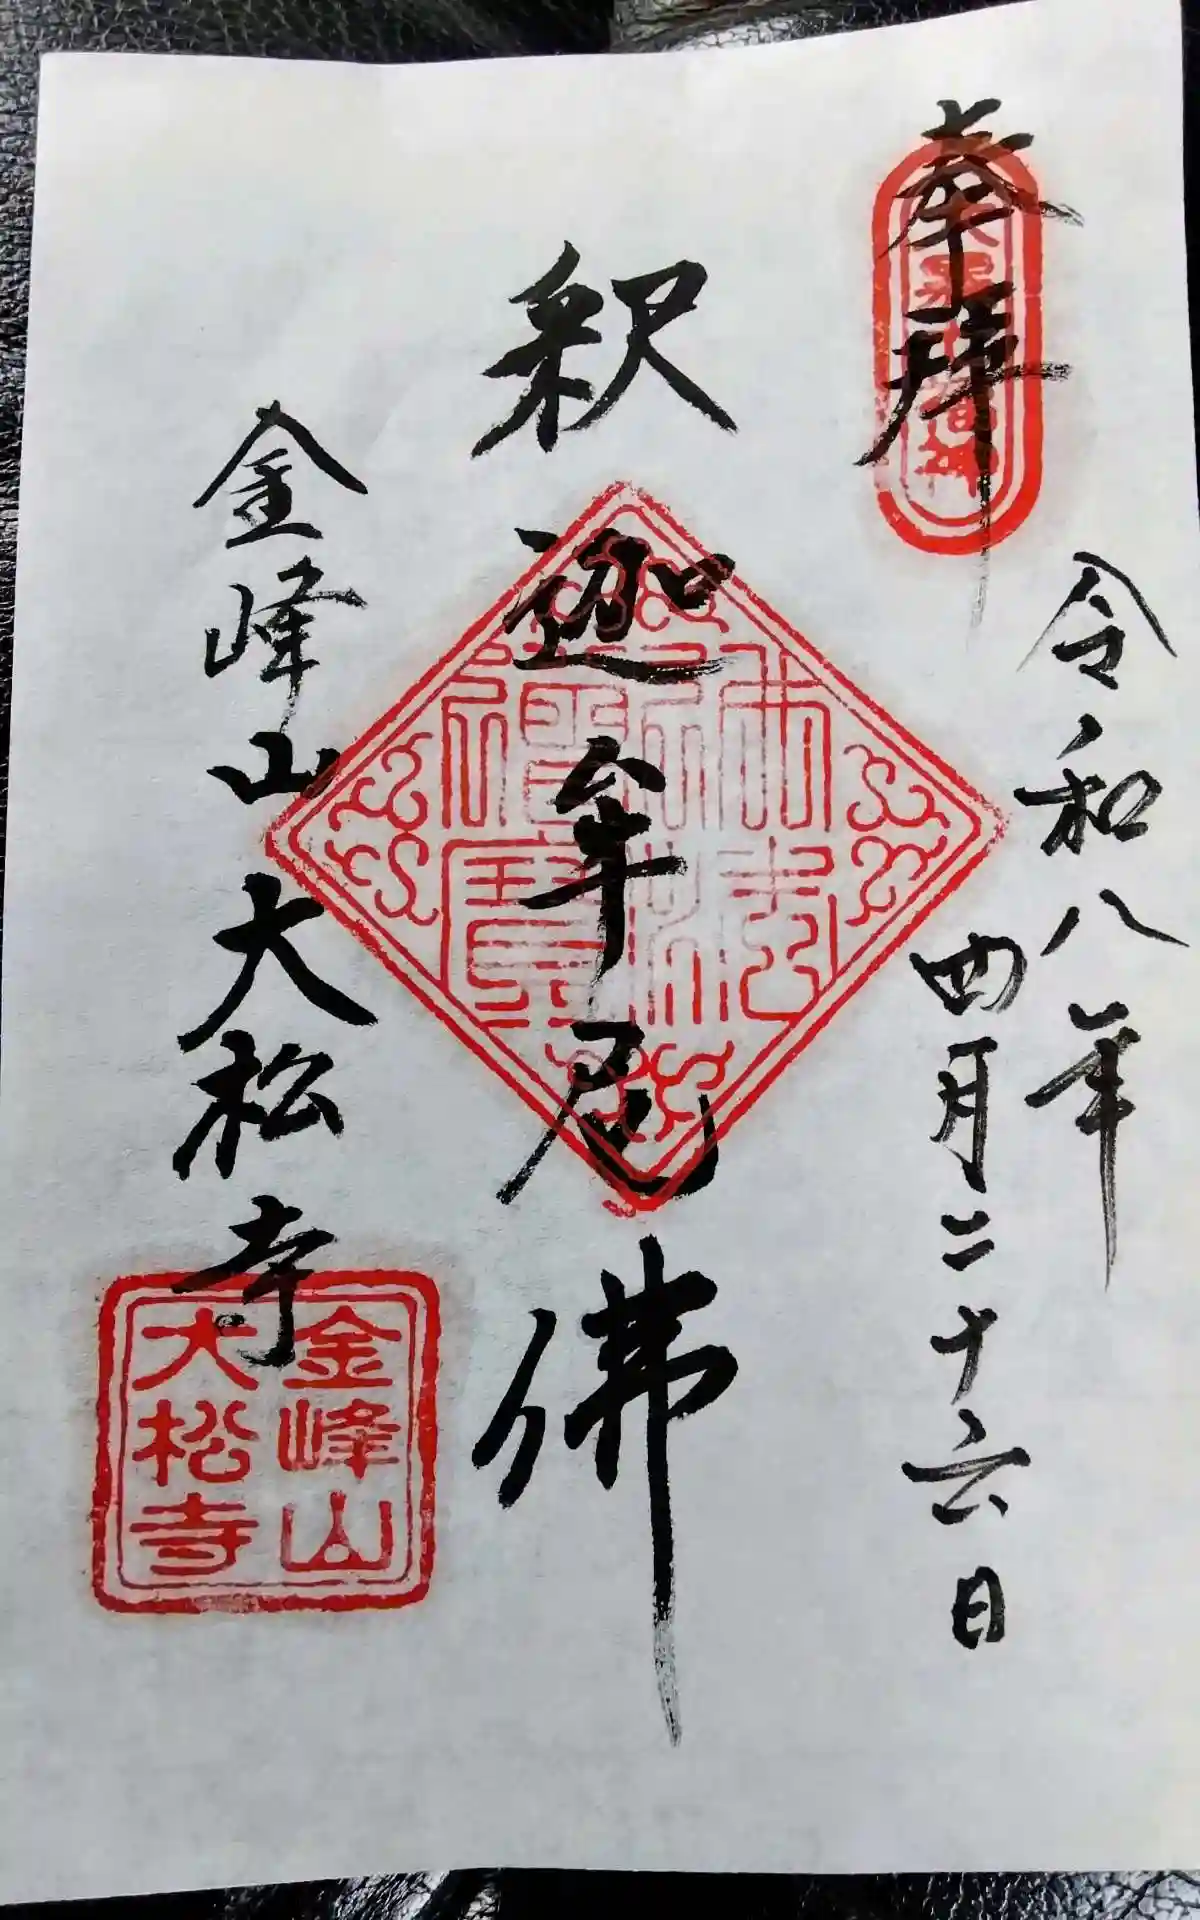 奉拜
令和八年
四月二十六日
釈迦牟尼佛
金峰山大松寺
金峰山
大松寺